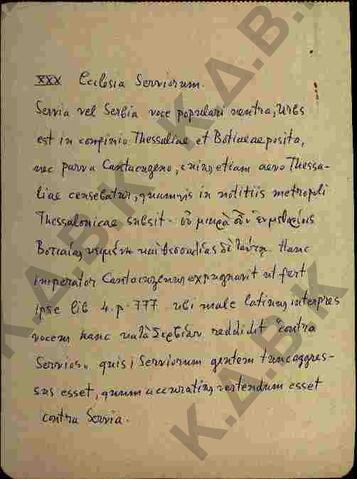 XXX Ecclesia Serviorum.
Servia vel Serbia voce populari neutra, Urbs
est in confinio Thessaliae et Botiaeae posita,
nec parva Cantacuzeno, cuius etiam aevo Thessa-
liae censebatur, quamvis in notitiis metropoli
Thessalonicae subsit - οὐ μικρὰ
Βοτιαίας καὶ Θεσσαλίας Hanc
imperator Cantacuzenus expugnavit ut fert
ipse lib 4. p. 777. ubi male latinus interpres
vocem hanc κατὰ Σερβίων reddidit contra
Servios, quasi Serviorum gentem tunc aggres-
sus esset, quum accuratius vertendum esset
contra Servia.
Κ.Δ.Β.Κ
Κ.Δ.Β.Κ
Κ.Δ.Β.Κ